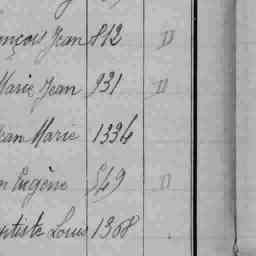 nçois Jean 812 D
Marie Jean 931 D
ean Marie 1334
n Eugène 549 D
ptiste Louis 1368